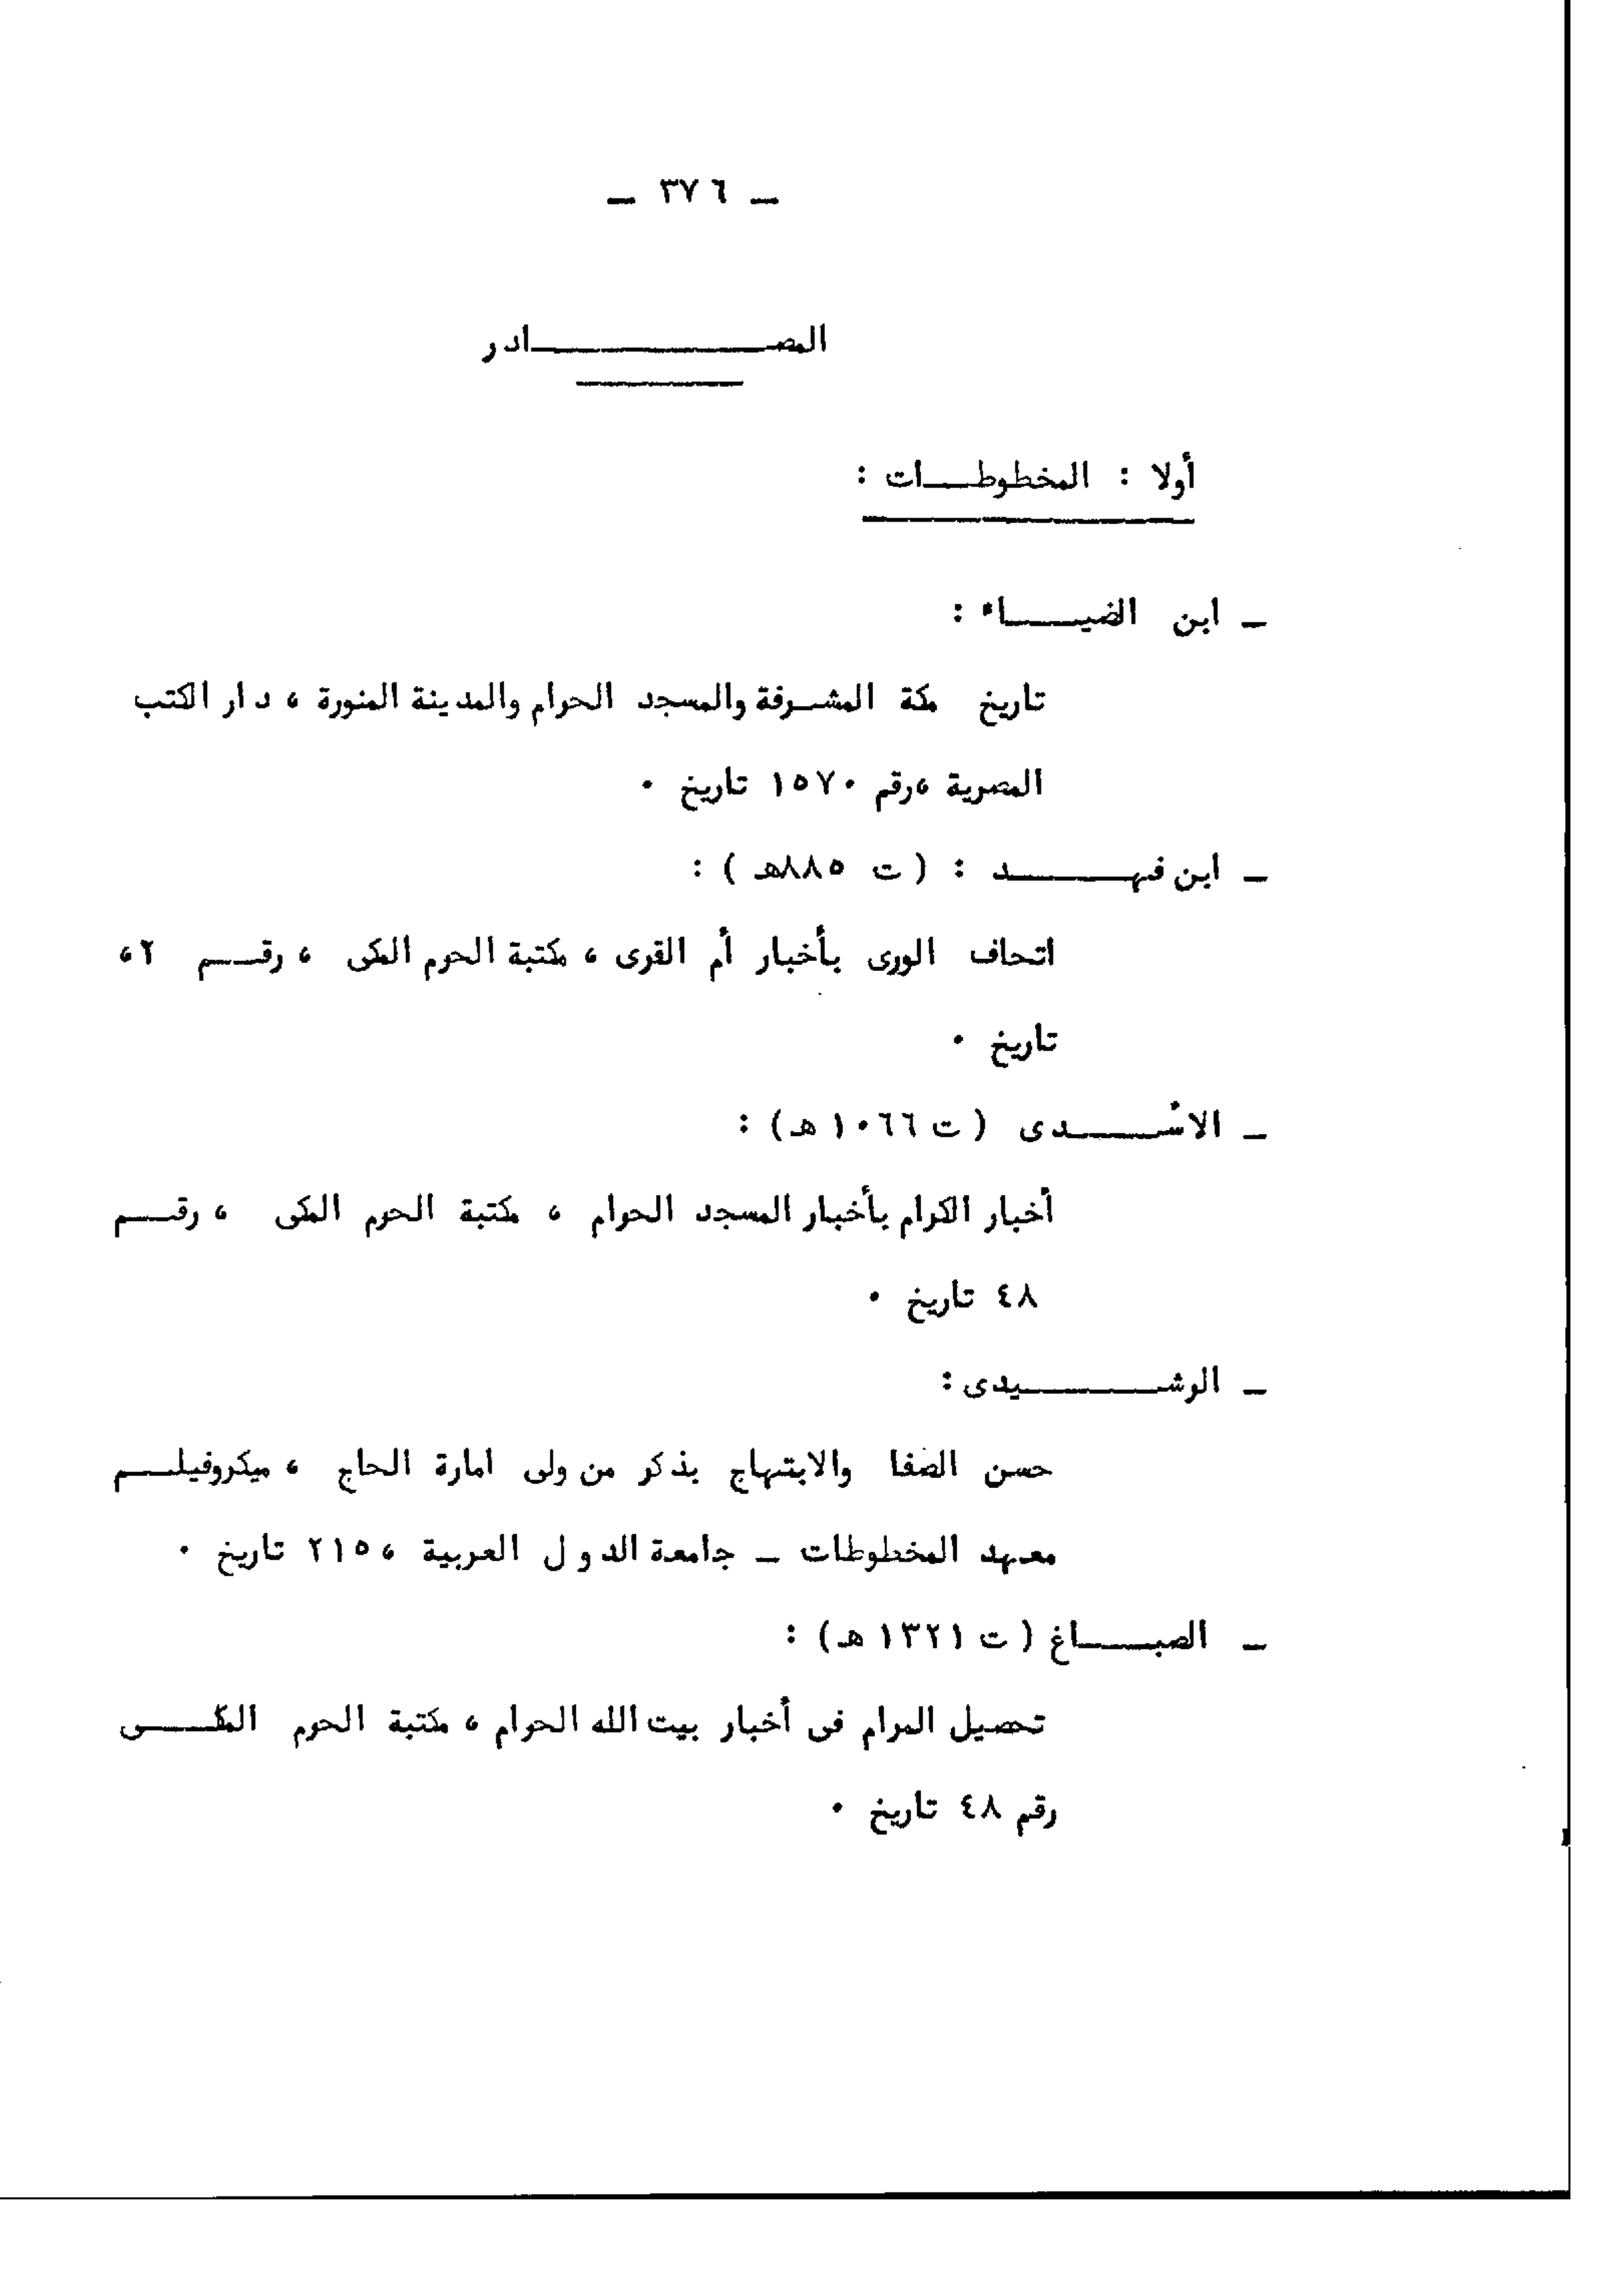 ـ ٣٧٦ ـ
المصـــــــــادر
أولا : المخطوطـــات :
ـ ابن الضيــــاء :
تاريخ مكة المشـرفة والمسجد الحرام والمدينة المنورة ، دار الكتب
المصرية ،رقم ١٥٧٠ تاريخ ٠
ـ ابن فهـــــــد : ( ت ٨٨٥هـ ) :
اتحاف الورى بأخبار أم القرى ، مكتبة الحرم المكى ، رقــم ٢،
تاريخ ٠
ـ الأســــــدى ( ت ١٠٦٦ هـ ) :
أخبار الكرام بأخبار المسجد الحرام ، مكتبة الحرم المكى ، رقــم
٤٨ تاريخ ٠
ـ الرشـــــــيدى :
حسن الصفا والابتهاج بذكر من ولى امارة الحاج ، ميكروفيلــم
معهد المخطوطات ـ جامعة الدول العربية ،٢١٥ تاريخ ٠
ـ الصبــــاغ ( ت ١٣٢١ هـ ) :
تحصيل المرام فى أخبار بيت الله الحرام ، مكتبة الحرم المكــــى
رقم ٤٨ تاريخ ٠